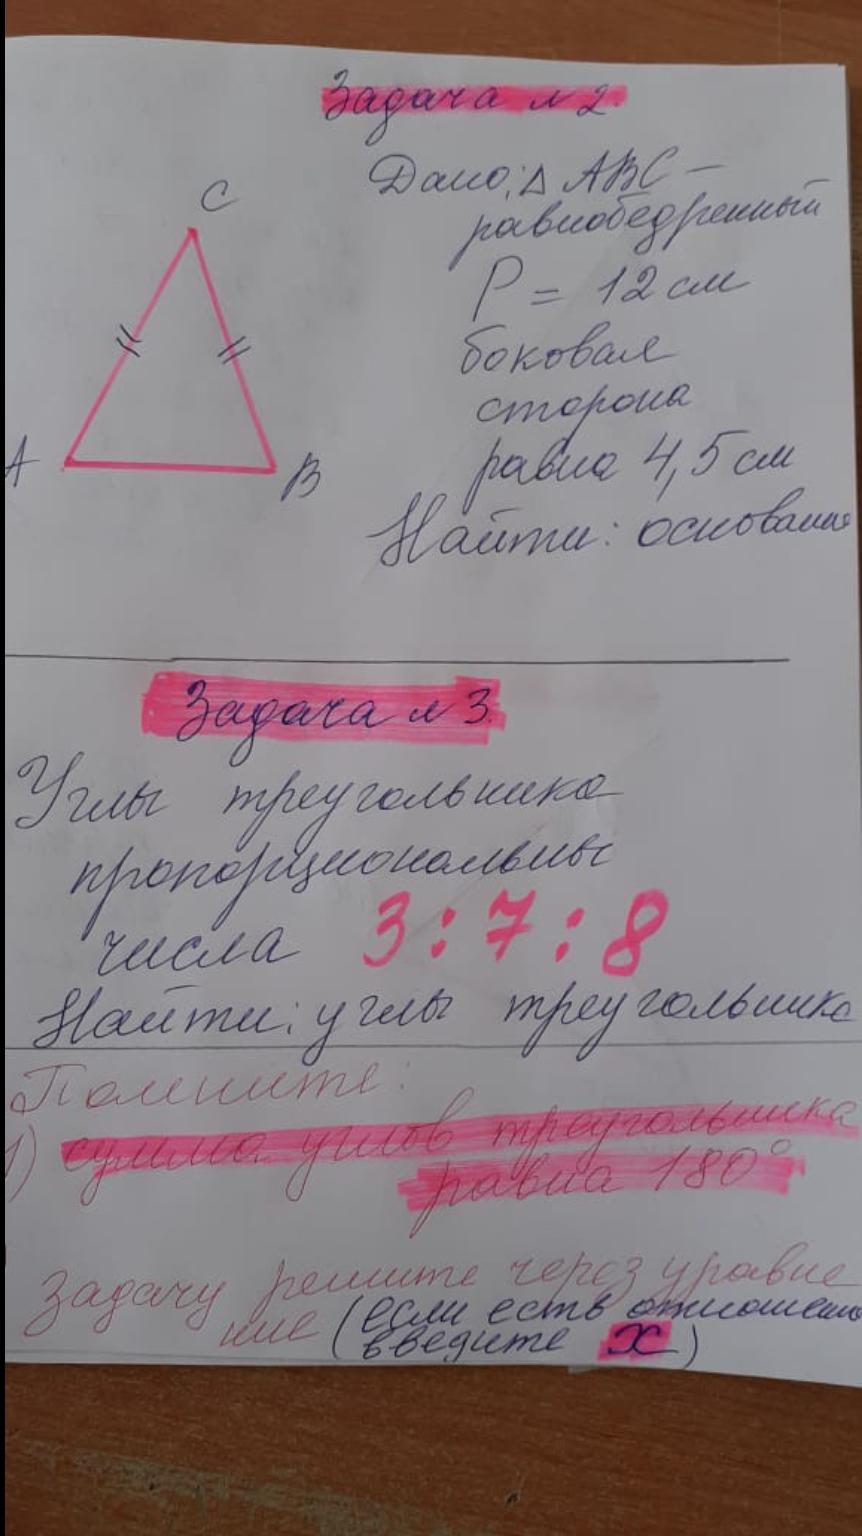 Задача №2.
C
Дано: Δ ABC –
равнобедренный
P = 12 см
боковая
сторона
A
B
равна 4,5 см
Найти: основание
Задача №3.
Углы треугольника
пропорциональны
числа 3:7:8
Найти: углы треугольника
Помните:
1) сумма углов треугольника
равна 180°
Задачу решите через уравне
ние (если есть отношение
введите x)